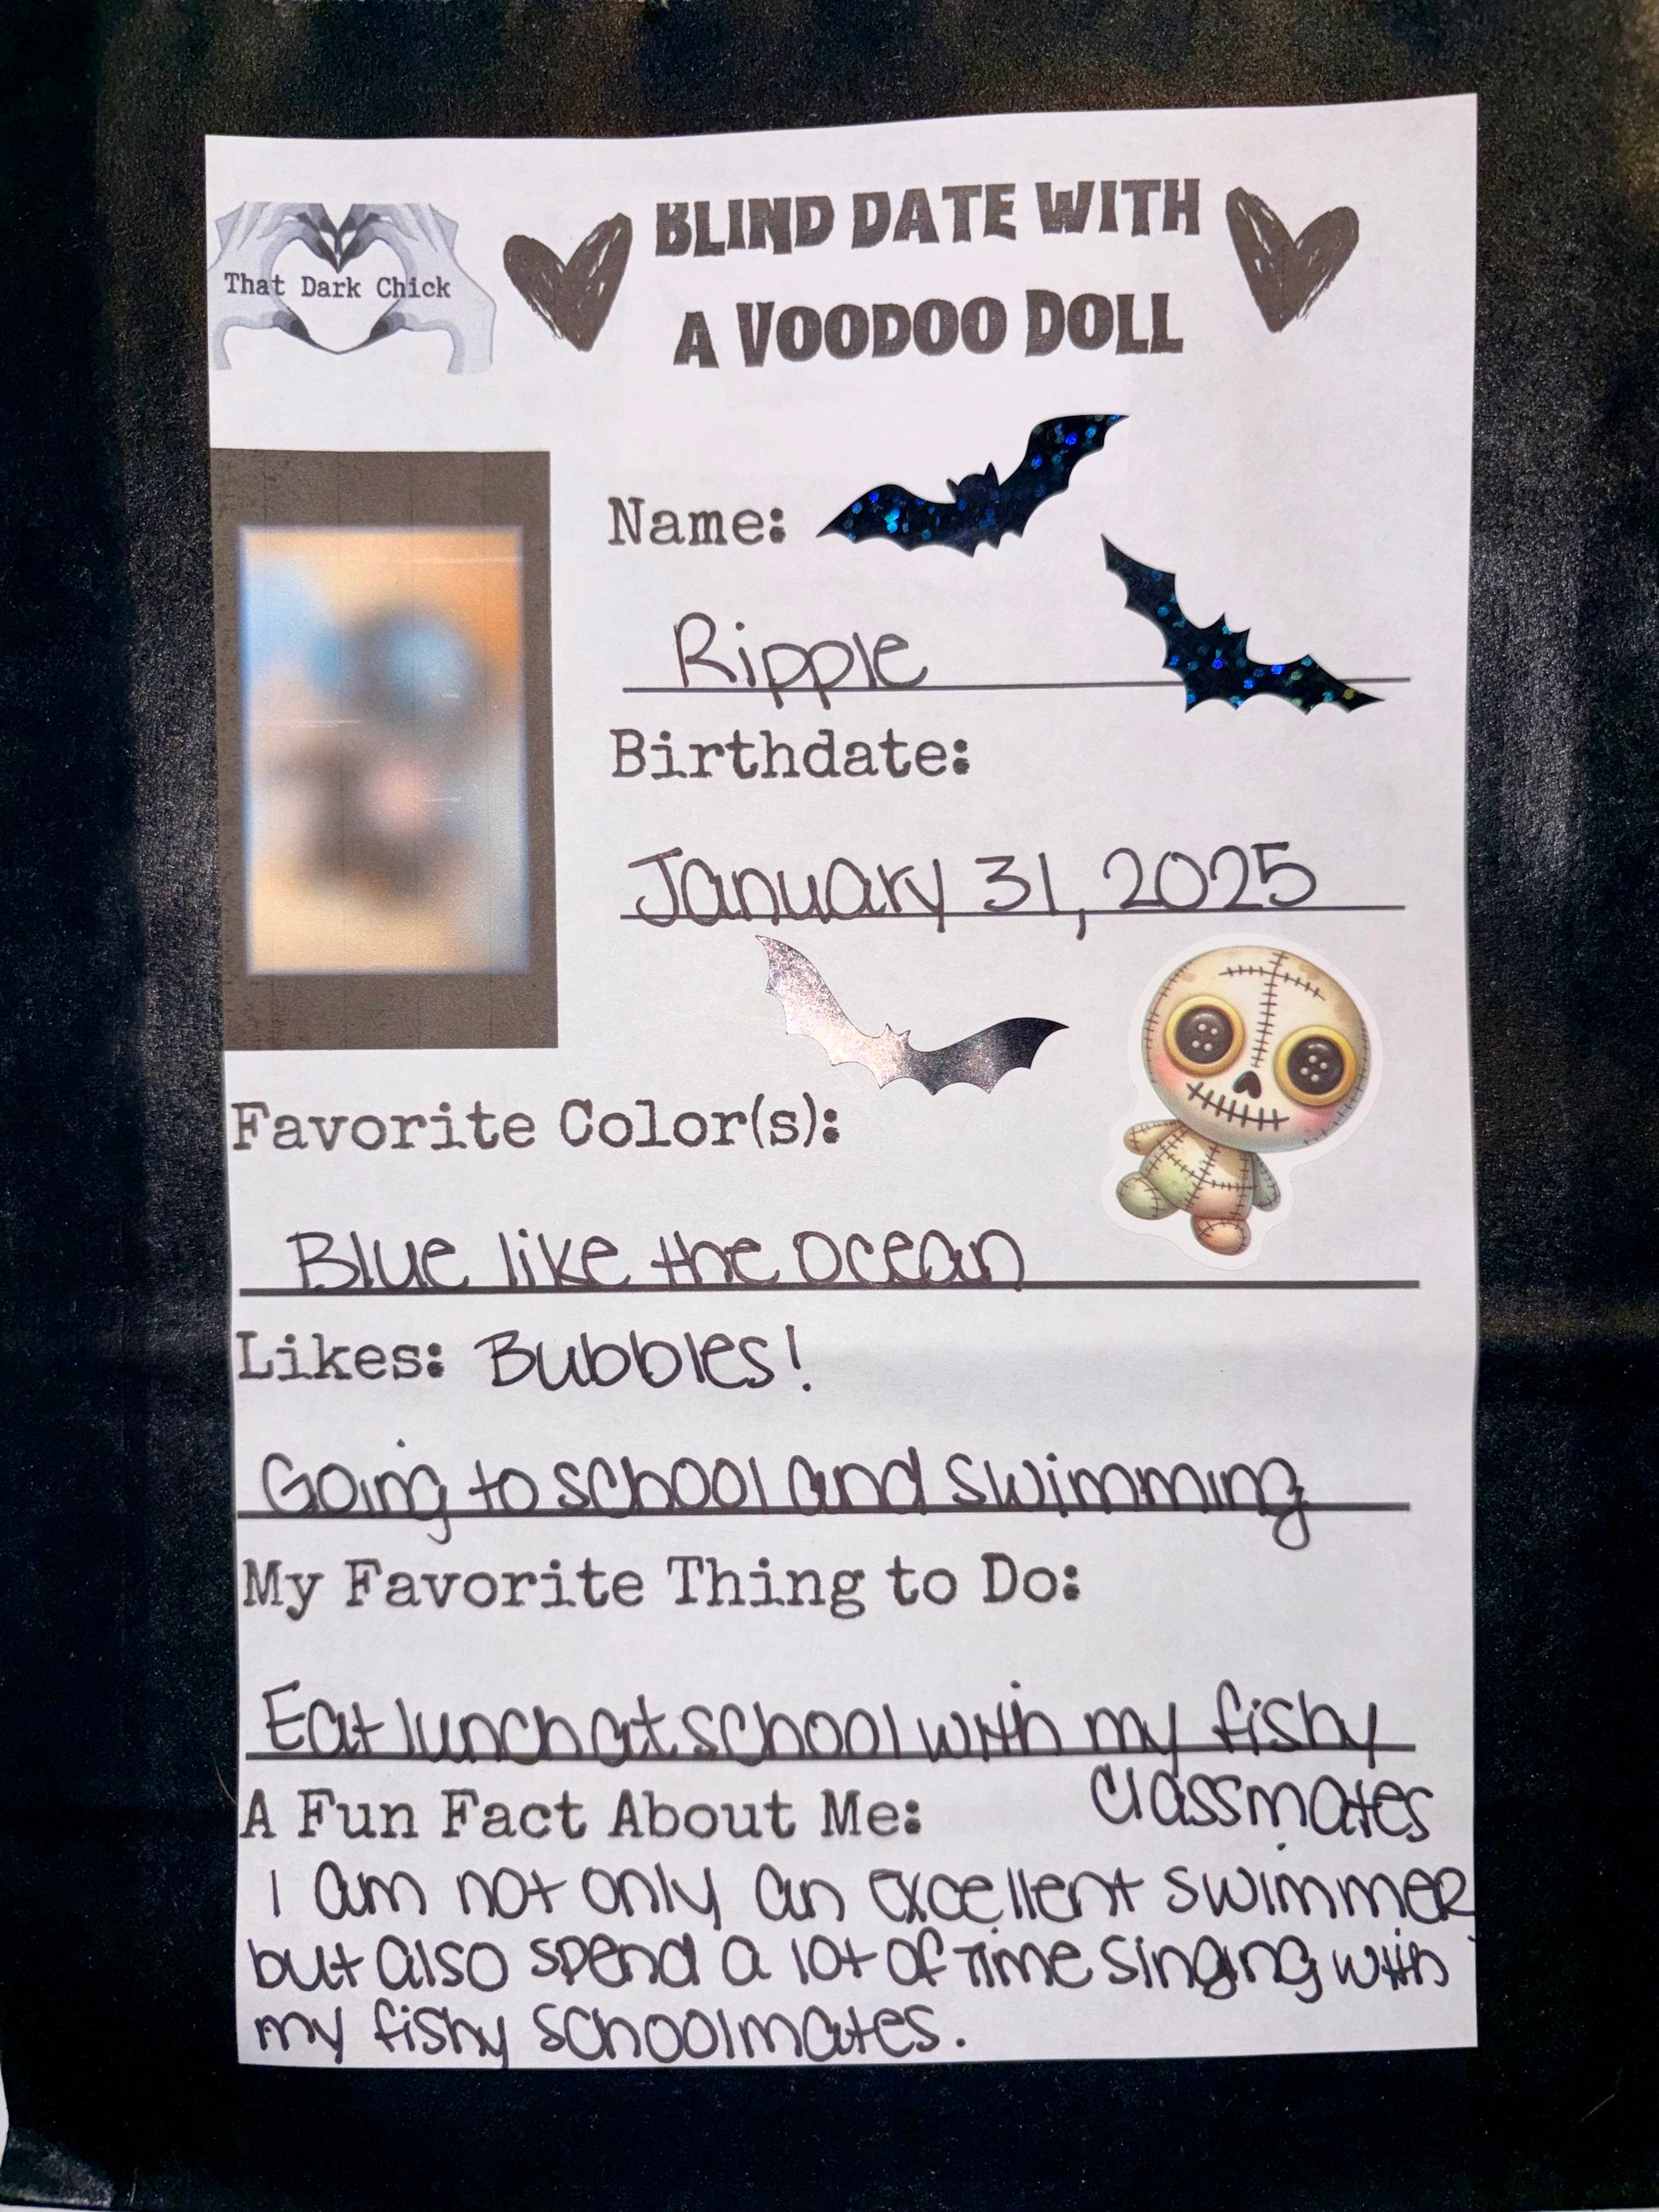 That Dark Chick
BLIND DATE WITH
A VOODOO DOLL
Name:
Ripple
Birthdate:
January 31, 2025
Favorite Color(s):
Blue like the ocean
Likes: Bubbles!
Going to school and swimming
My Favorite Thing to Do:
Eat lunch at school with my fishy
classmates
A Fun Fact About Me:
I am not only an excellent swimmer
but also spend a lot of time singing with
my fishy schoolmates.